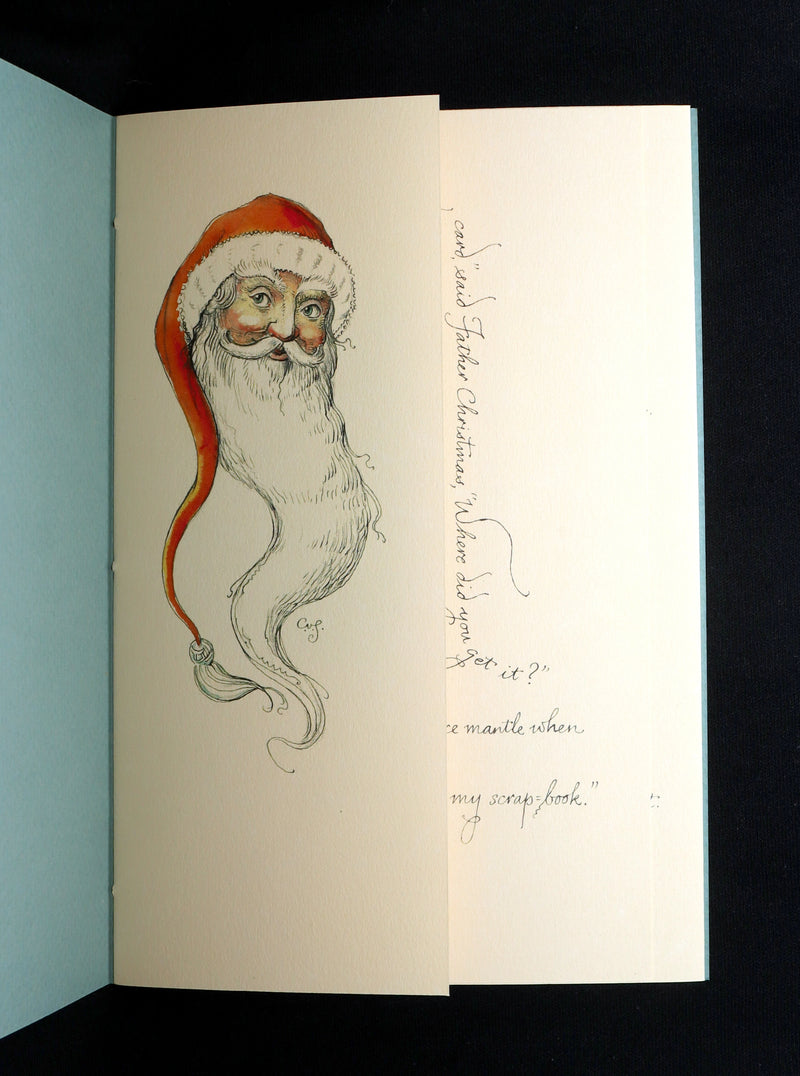 card," said Father Christmas, "Where did you get it?"
ce mantle when
my scrap-book."
C.v.S.